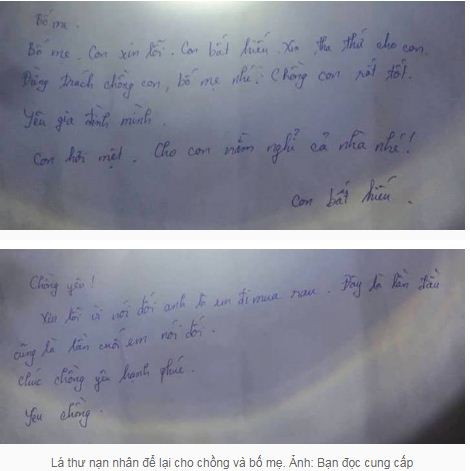 Bố mẹ.
Bố mẹ. Con xin lỗi. Con bất hiếu. Xin tha thứ cho con.
Đừng trách chồng con, bố mẹ nhé! Chồng con rất tốt.
Yêu gia đình mình.
Con hơi mệt. Cho con nằm nghỉ cả nhà nhé!
Con bất hiếu.
Chồng yêu!
Xin lỗi vì nói dối anh là em đi mua rau. Đây là lần đầu
cũng là lần cuối em nói dối.
Chúc chồng yêu hạnh phúc.
Yêu chồng.
Lá thư nạn nhân để lại cho chồng và bố mẹ. Ảnh: Bạn đọc cung cấp